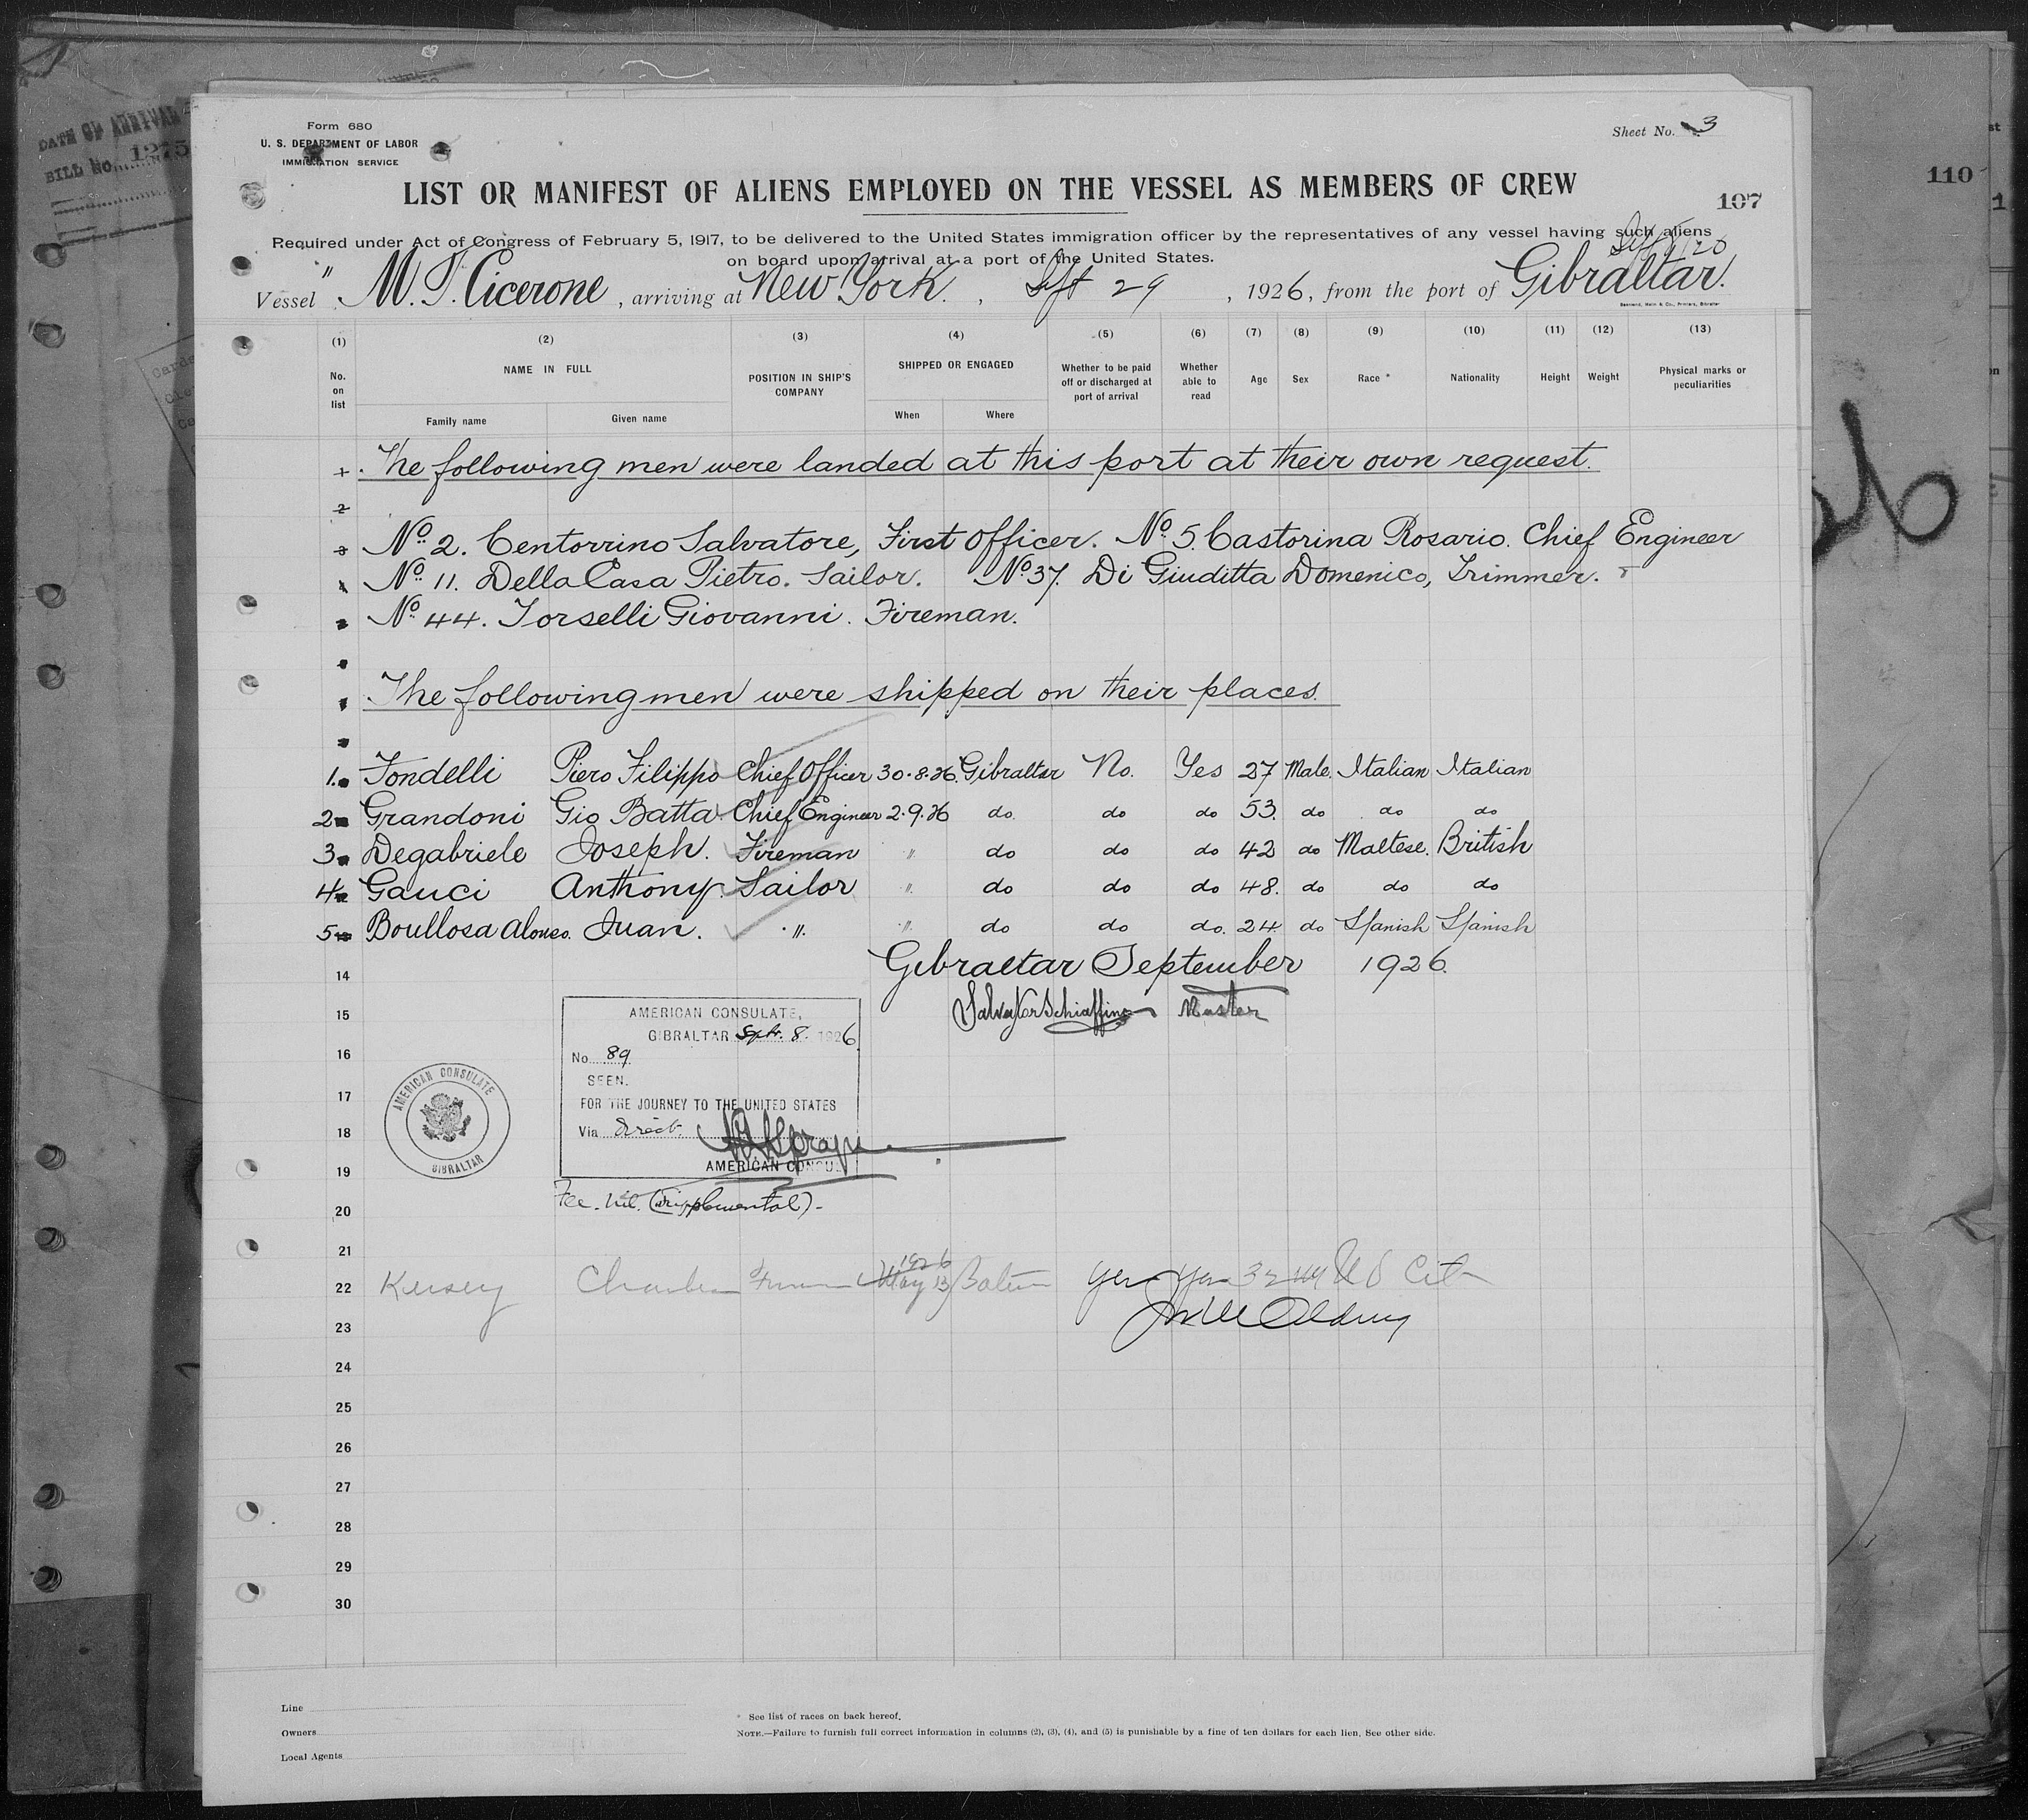 DATE OF ARRIVAL
BILL No. 1275
110
Form 680
U. S. DEPARTMENT OF LABOR
IMMIGRATION SERVICE
Sheet No. 3
LIST OR MANIFEST OF ALIENS EMPLOYED ON THE VESSEL AS MEMBERS OF CREW
107
Required under Act of Congress of February 5, 1917, to be delivered to the United States immigration officer by the representatives of any vessel having such aliens
on board upon arrival at a port of the United States.
Vessel " M. T. Cicerone, arriving at New York, Sept 29, 1926, from the port of Gibraltar.
(1) (2) (3) (4) (5) (6) (7) (8) (9) (10) (11) (12) (13)
No. on list NAME IN FULL POSITION IN SHIP'S COMPANY SHIPPED OR ENGAGED Whether to be paid off or discharged at port of arrival Whether able to read Age Sex Race * Nationality Height Weight Physical marks or peculiarities
Family name Given name When Where
1 The following men were landed at this port at their own request.
2
3 No. 2. Centorrino Salvatore, First Officer. No. 5. Castorina Rosario. Chief Engineer
4 No. 11. Della Casa Pietro. Sailor. No. 37. Di Giuditta Domenico, Trimmer.
No. 44. Torselli Giovanni. Fireman.
The following men were shipped on their places.
1. Tondelli Piero Filippo Chief Officer 30.8.26. Gibraltar No. Yes 27 Male. Italian Italian
2 Grandoni Gio Batta Chief Engineer 2.9.26 do. do do 53. do do do
3. Degabriele Joseph. Fireman " do do do 42 do Maltese. British
4. Gauci Anthony. Sailor " do do do 48. do do do
5 Boullosa Alonso. Juan. " " do do do. 24 do Spanish Spanish
14 Gibraltar September 1926.
15 Salvator Schiaffino Master
AMERICAN CONSULATE,
GIBRALTAR Sept. 8. 1926
16 No. 89
SEEN.
17 FOR THE JOURNEY TO THE UNITED STATES
18 Via direct.
19 AMERICAN CONSUL
AMERICAN CONSULATE GIBRALTAR
20 Fee. Nil. (supplemental).-
21
22 Kersey May 13 1926 Yes 32
23
24
25
26
27
28
29
30
Line
Owners
Local Agents
* See list of races on back hereof.
NOTE.—Failure to furnish full correct information in columns (2), (3), (4), and (5) is punishable by a fine of ten dollars for each lien. See other side.